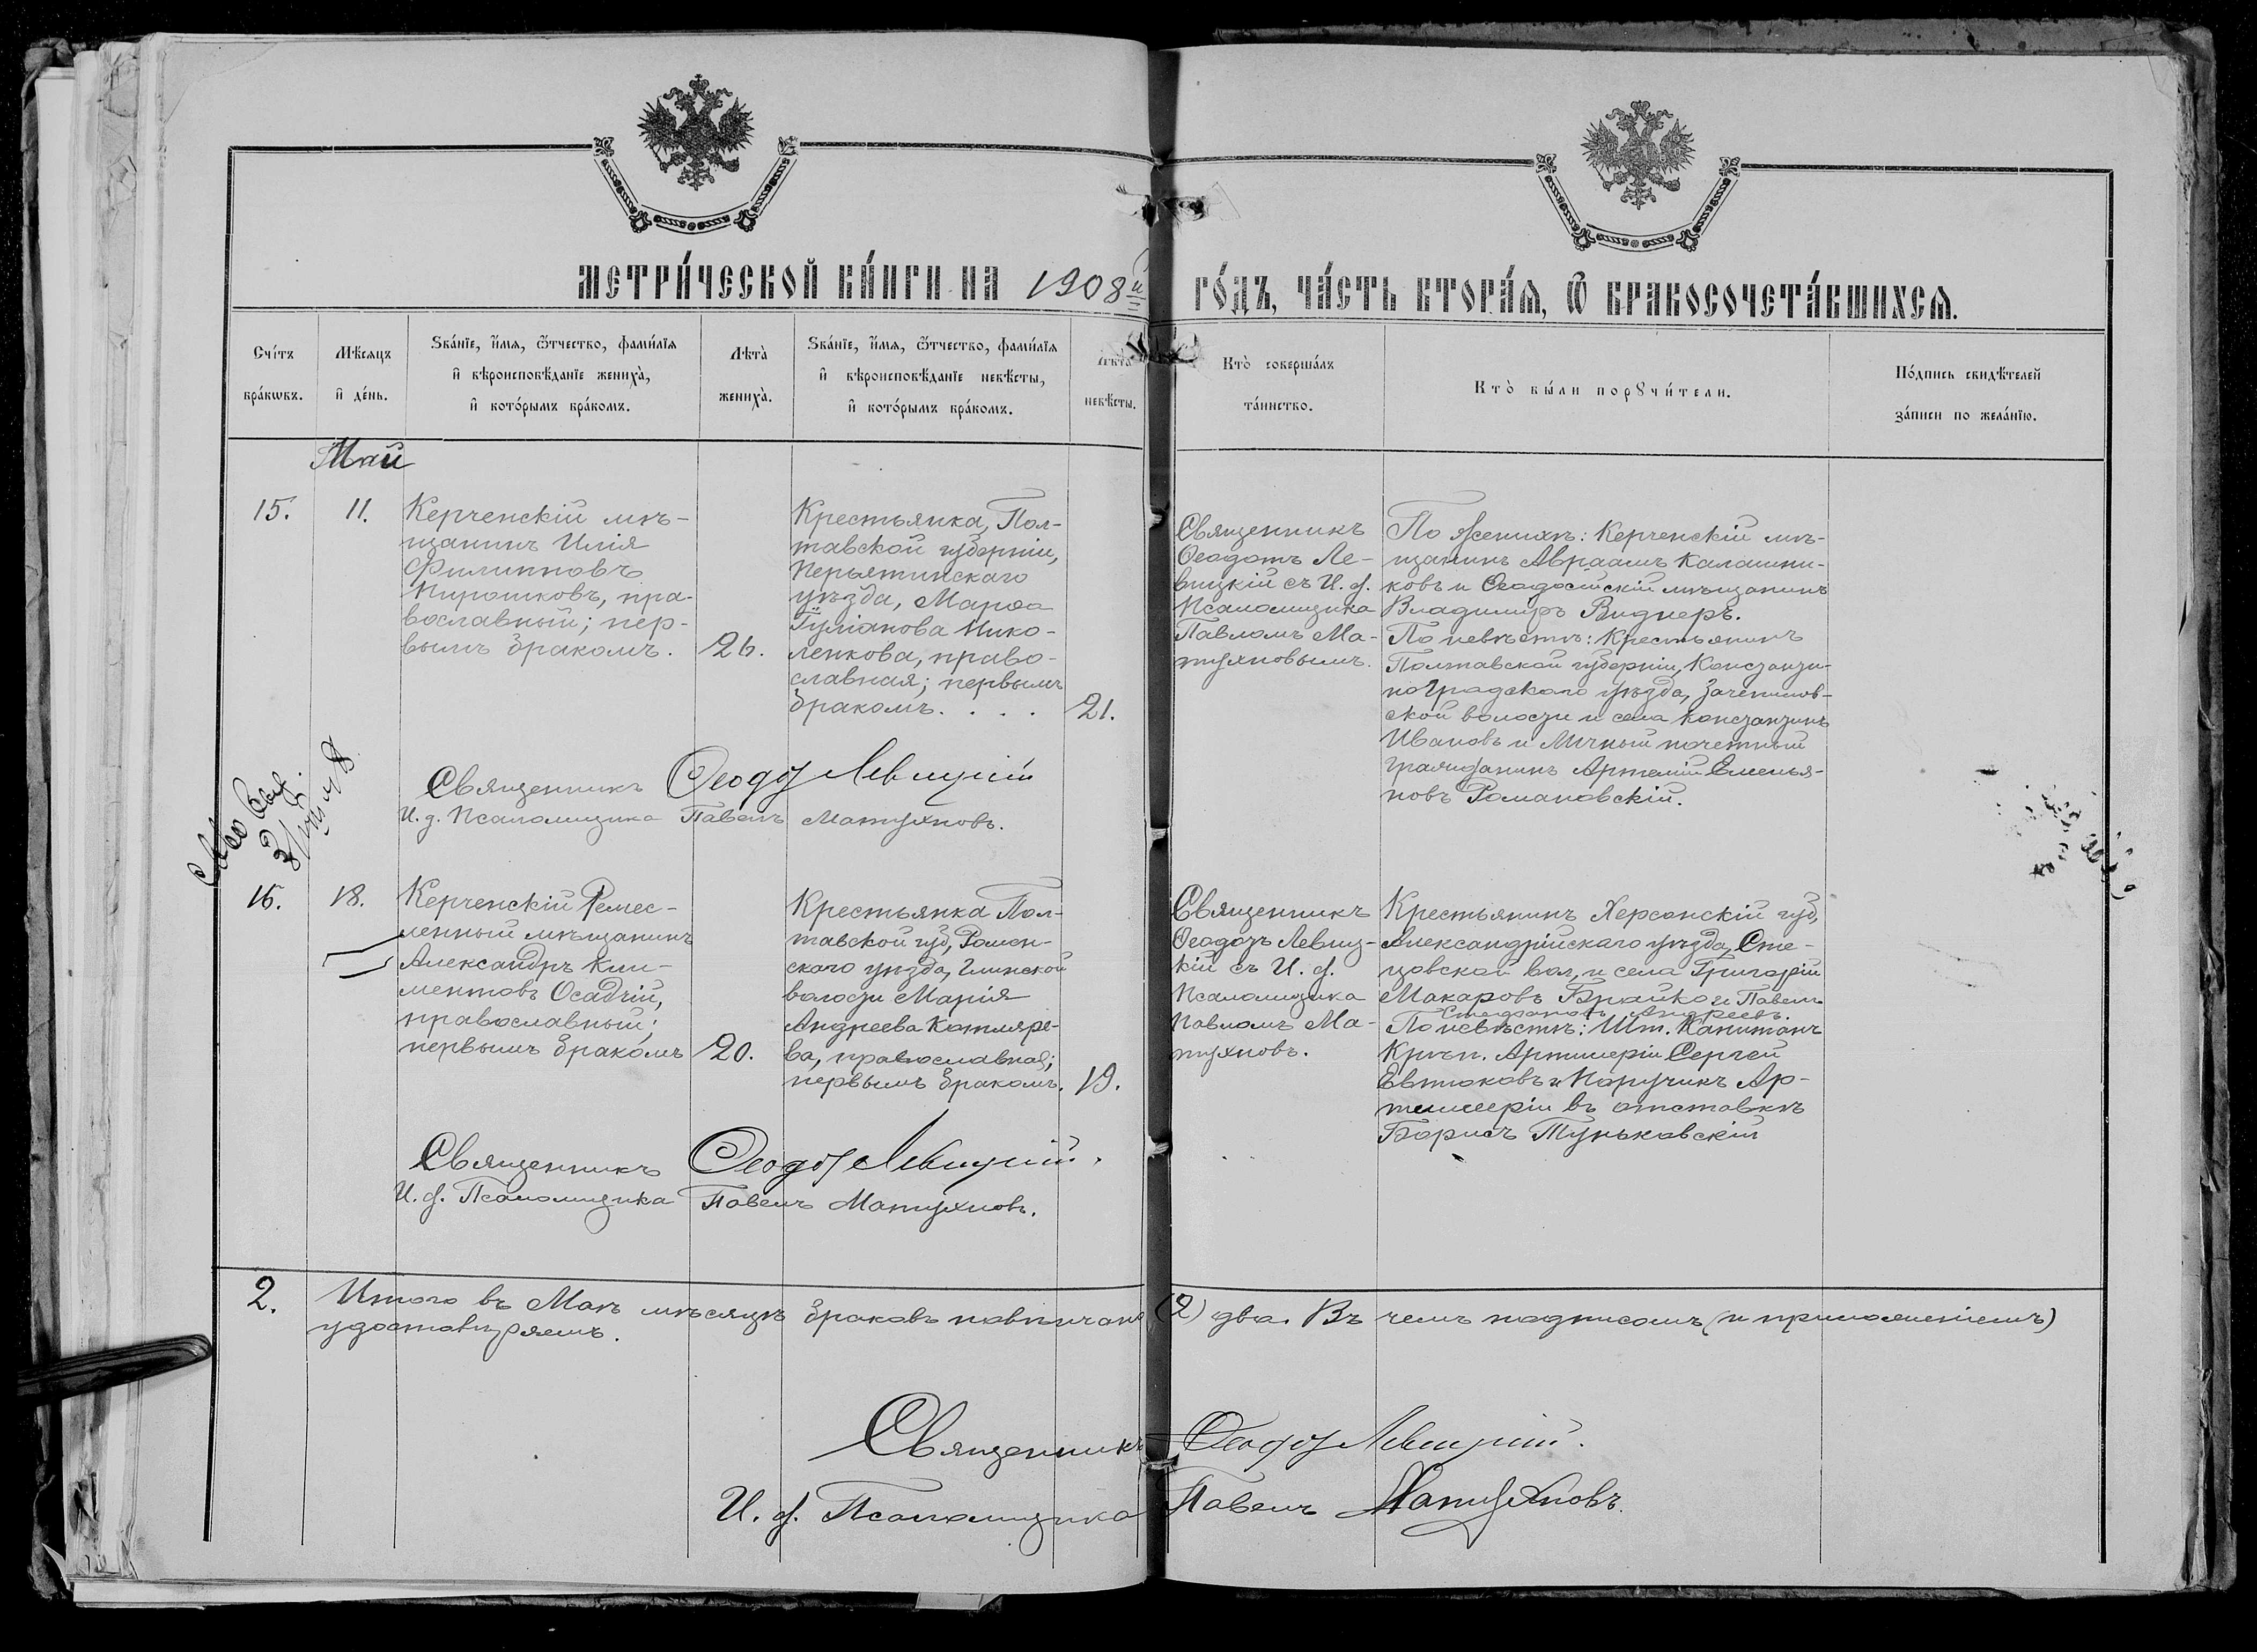 МЕТРИ́ЧЕСКОЙ КНИ́ГИ НА 1908й ГО́ДЪ, ЧА́СТЬ ВТОРА́Я, Ѡ БРАКОСОЧЕТА́ВШИХСЯ.
Сче́тъ бра́кѡвъ.
Мѣ́сяцъ и҆ де́нь.
Ѕва́нїе, и҆́мя, ѻ҆́тчество, фами́лїя и҆ вѣроисповѣ́данїе жениха̀, и҆ кото́рымъ бра́комъ.
Лѣта̀ жениха̀.
Ѕва́нїе, и҆́мя, ѻ҆́тчество, фами́лїя и҆ вѣроисповѣ́данїе невѣ́сты, и҆ кото́рымъ бра́комъ.
Лѣта̀ невѣ́сты.
Кто̀ соверша́лъ та́инство.
Кто̀ бы́ли порꙋчи́тели.
По́дпись свидѣ́телей за́писи по жела́нїю.
Май
15.
11.
Керченскій мѣ-
щанинъ Илія
Филипповъ
Пирошковъ, пра-
вославный; пер-
вымъ бракомъ.
26.
Крестьянка, Пол-
тавской губерніи,
Перьятинскаго
уѣзда, Марѳа
Гуліанова Нико-
ленкова, право-
славная; первымъ
бракомъ. . . .
21.
Священникъ
Ѳеодотъ Ле-
вицкій съ И. д.
Псаломщика
Павломъ Ма-
тухновымъ.
По женихѣ: Керченскій мѣ-
щанинъ Авраамъ Калашни-
ковъ и Ѳеодосійскій мѣщанинъ
Владимиръ Виднеръ.
По невѣстѣ: Крестьянинъ
Полтавской губерніи, Константи-
ноградскаго уѣзда, Зачепилов-
ской волости и села Константинъ
Ивановъ и Личный почетный
гражданинъ Артемій Емелья-
новъ Романовскій.
Священникъ Ѳеодотъ Левицкій
И. д. Псаломщика Павелъ Матухновъ.
16.
18.
Керченскій Ремес-
ленный мѣщанинъ
Александръ Кли-
ментовъ Осадчій,
православный;
первымъ бракомъ
20.
Крестьянка Пол-
тавской губ, Ромен-
скаго уѣзда, Глинской
волости Марія
Андреева Котляре-
ва, православная;
первымъ бракомъ.
19.
Священникъ
Ѳеодотъ Левиц-
кій съ И. д.
Псаломщика
Павломъ Ма-
тухновъ.
Крестьянинъ Херсонскій губ,
Александрійскаго уѣзда, Сте-
цовской вол, и села Григорій
Макаровъ Брайко и Павелъ
Стефановъ Андреевъ.
По невѣстѣ: Шт. Капитанъ
Крѣп. Артилеріи Сергей
Евтюковъ и Поручикъ Ар-
тиллеріи въ отставкѣ
Борисъ Туньковскій
Священникъ Ѳеодотъ Левицкій.
И. д. Псаломщика Павелъ Матухновъ.
2.
Итого въ Маѣ мѣсяцѣ браковъ повѣнчано (2) два. Въ чемъ подписомъ (и приложеніемъ)
удостовѣряемъ.
Священникъ Ѳеодотъ Левицкій.
И. д. Псаломщика Павелъ Матухновъ.